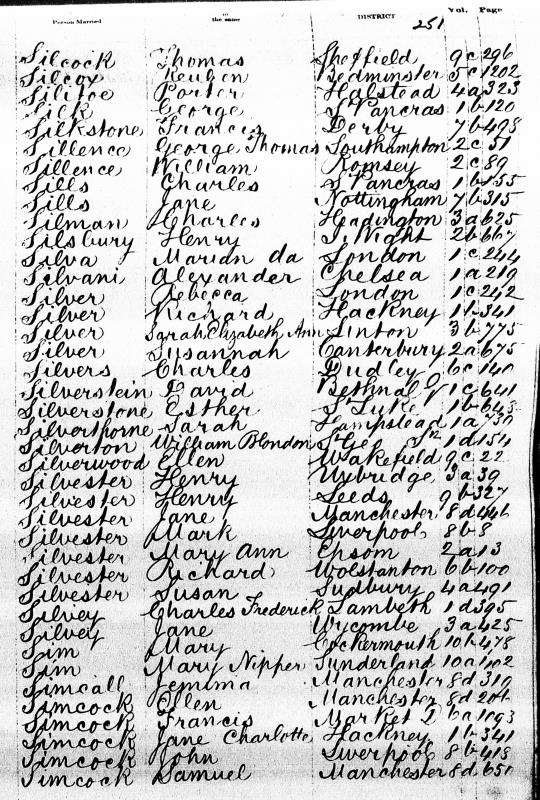 Person Married the same DISTRICT Vol. Page
251
Silcock Thomas Sheffield 9c 296
Silcox Reuben Bedminster 5c 1202
Silence Porter Halstead 4a 323
Silk George S. Pancras 1b 120
Silkstone Francis Derby 7b 498
Sillence George Thomas Southampton 2c 51
Sillence William Romsey 2c 89
Sills Charles S. Pancras 1b
Sills Jane Nottingham 7b 315
Silman Charles Headington 3a 625
Silsbury Henry I. Wight 2b 667
Silva Marian da London 1c 244
Silvani Alexander Chelsea 1a 219
Silver Rebecca London 1c 242
Silver Richard Hackney 1b 341
Silver Sarah Elizabeth Ann Linton 3b 775
Silver Susannah Canterbury 2a 675
Silvers Charles Dudley 6c 140
Silverstein David Bethnal G 1c 641
Silverstone Esther S. Luke 1b 645
Silverthorne Sarah Hampstead 1a 739
Silverton William Blondon S. Geo 1d 154
Silverwood Ellen Wakefield 9c 22
Silvester Henry Uxbridge 3a 39
Silvester Henry Leeds 9b 327
Silvester Jane Manchester 8d 446
Silvester Mark Liverpool 8b 8
Silvester Mary Ann Epsom 2a 13
Silvester Richard Wolstanton 6b 100
Silvester Susan Sudbury 4a 491
Silvey Charles Frederick Lambeth 1d 395
Silvey Jane Wycombe 3a 425
Sim Mary Cockermouth 10b 478
Sim Mary Nipper Sunderland 10a 1102
Simcall Jemima Manchester 8d 319
Simcock Ellen Manchester 8d 206
Simcock Francis Market D 6a 1093
Simcock Jane Charlotte Hackney 1b 341
Simcock John Liverpool 8b 418
Simcock Samuel Manchester 8d 651